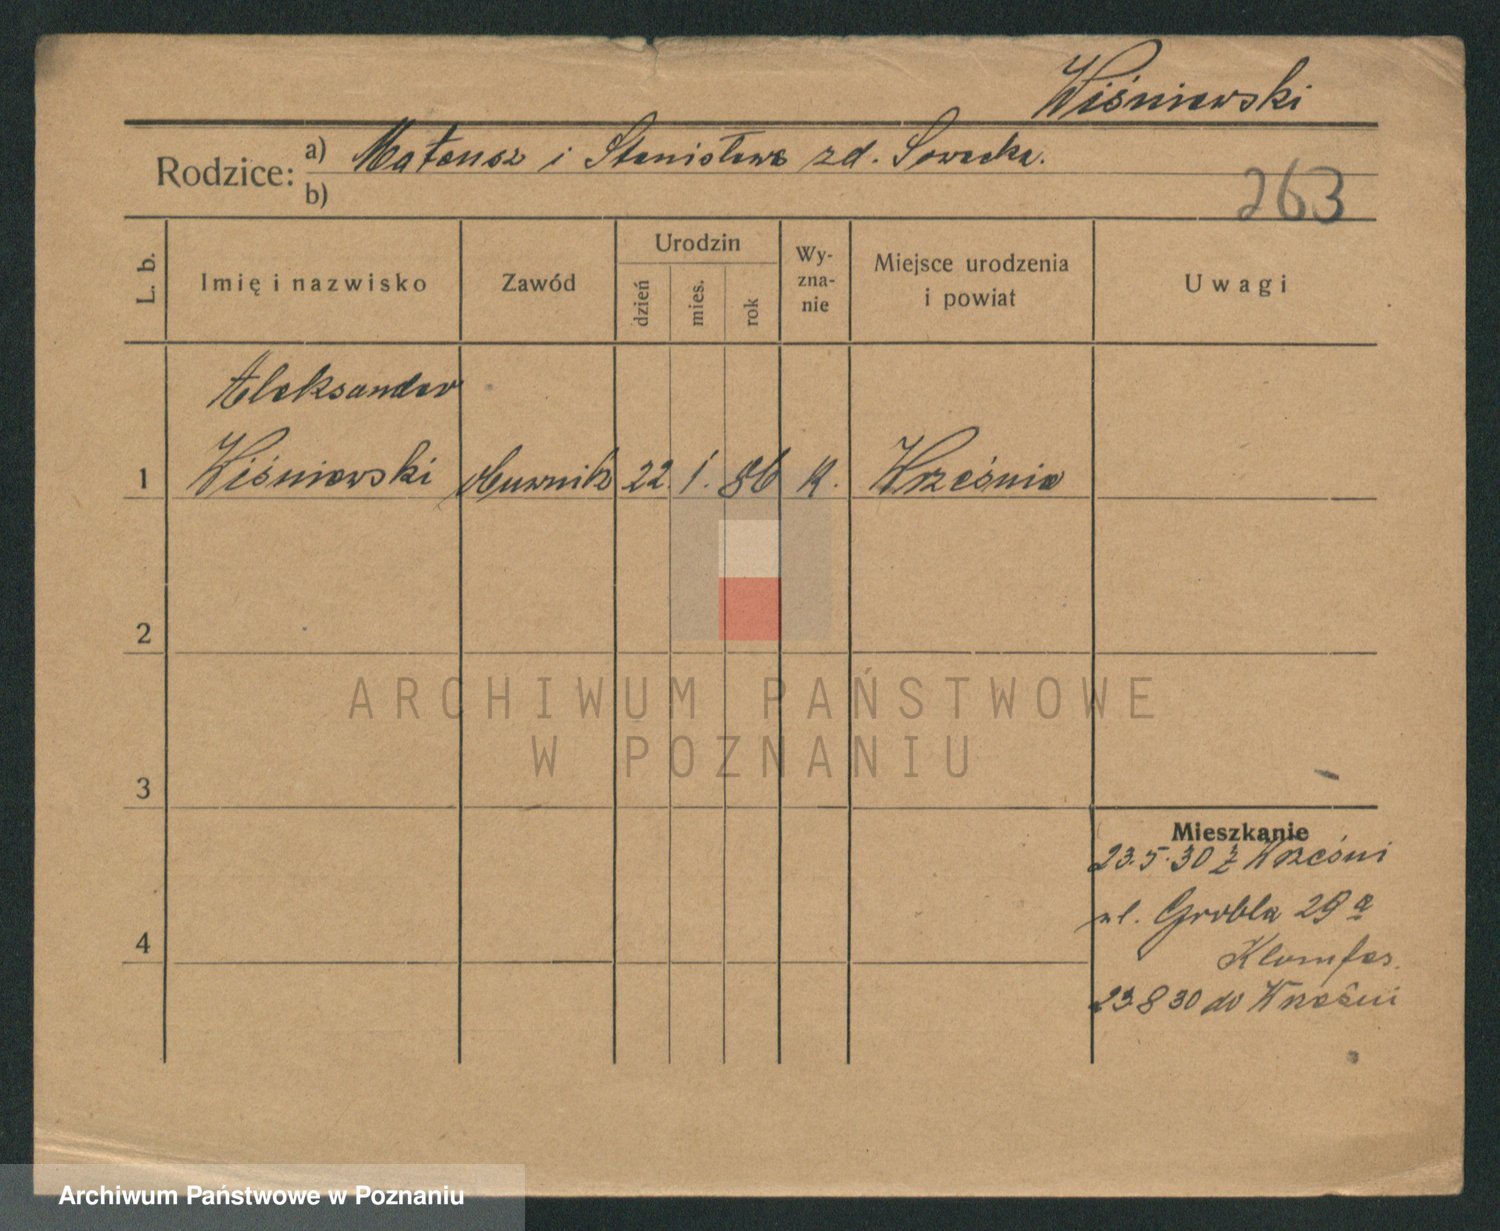 Wiśniewski
Rodzice: a) Mateusz i Stanisława zd. Sowecka.
b)
263
L. b.
Imię i nazwisko
Zawód
Urodzin
dzień
mies.
rok
Wy-
zna-
nie
Miejsce urodzenia
i powiat
Uwagi
Aleksander
1 Wiśniewski Murnik 22. 1. 86 k. Września
2
3
4
Mieszkanie
23.5.30 z Wrześni
ul. Grobla 29 a
23.8 30 do Wrześni
ARCHIWUM PAŃSTWOWE
W POZNANIU
Archiwum Państwowe w Poznaniu